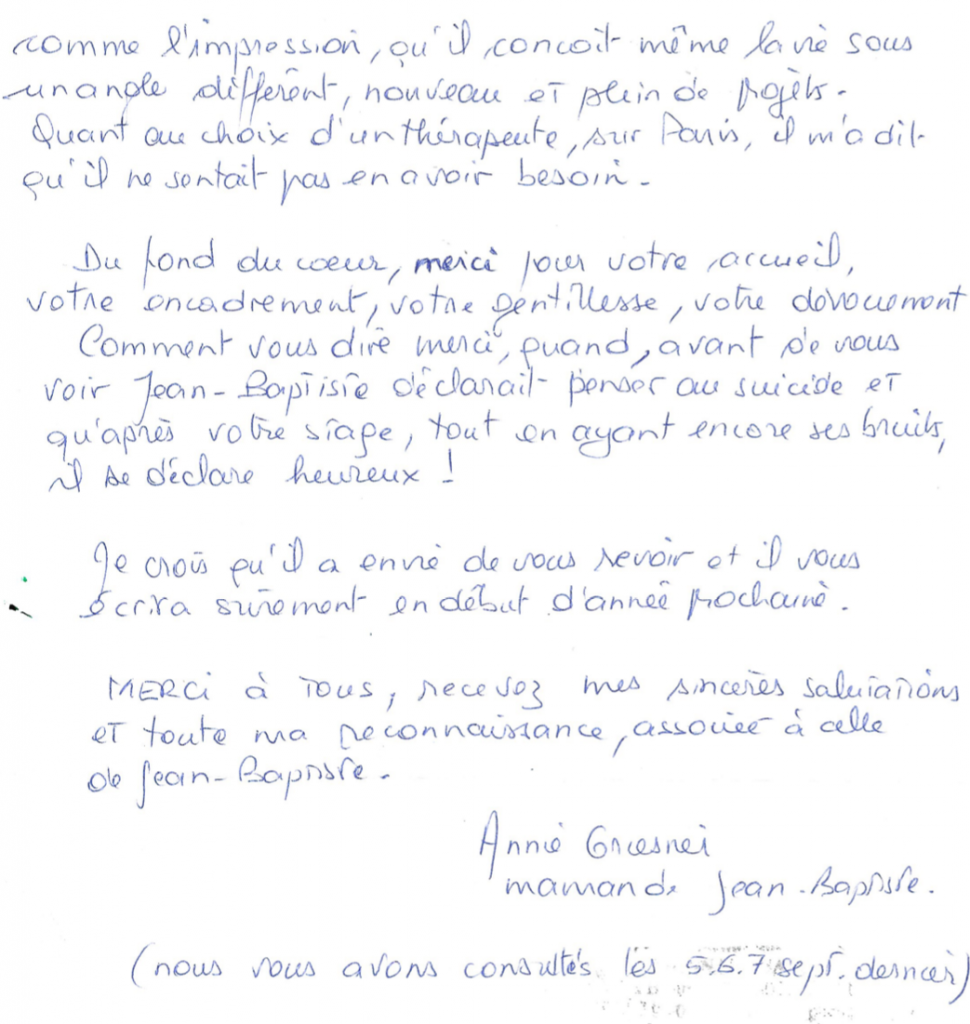 comme l'impression, qu'il conçoit même la vie sous
un angle différent, nouveau et plein de projets.
Quant au choix d'un thérapeute, sur Paris, il m'a dit
qu'il ne sentait pas en avoir besoin.
Du fond du coeur, merci pour votre accueil,
votre encadrement, votre gentillesse, votre dévouement
Comment vous dire merci, quand, avant de vous
voir Jean-Baptiste déclarait penser au suicide et
qu'après votre stage, tout en ayant encore ses bruits,
il se déclare heureux !
Je crois qu'il a envie de vous revoir et il vous
écrira sûrement en début d'année prochaine.
MERCI à TOUS, recevez mes sincères salutations
et toute ma reconnaissance, associée à celle
de Jean-Baptiste.
Annie
maman de Jean-Baptiste.
(nous vous avons consultés les 5.6.7 sept. dernier)